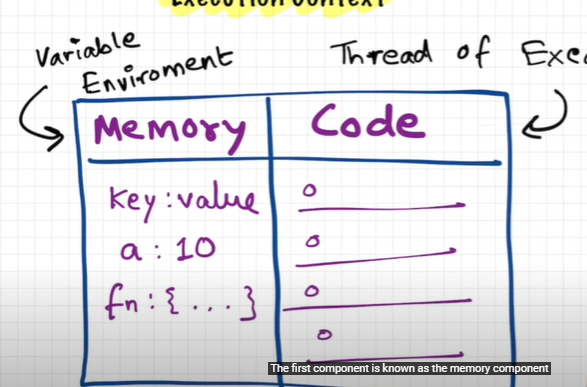 Execution Context
Variable
Enviroment
Thread of Exe
Memory
Code
key : value
a : 10
fn : { . . . }
The first component is known as the memory component